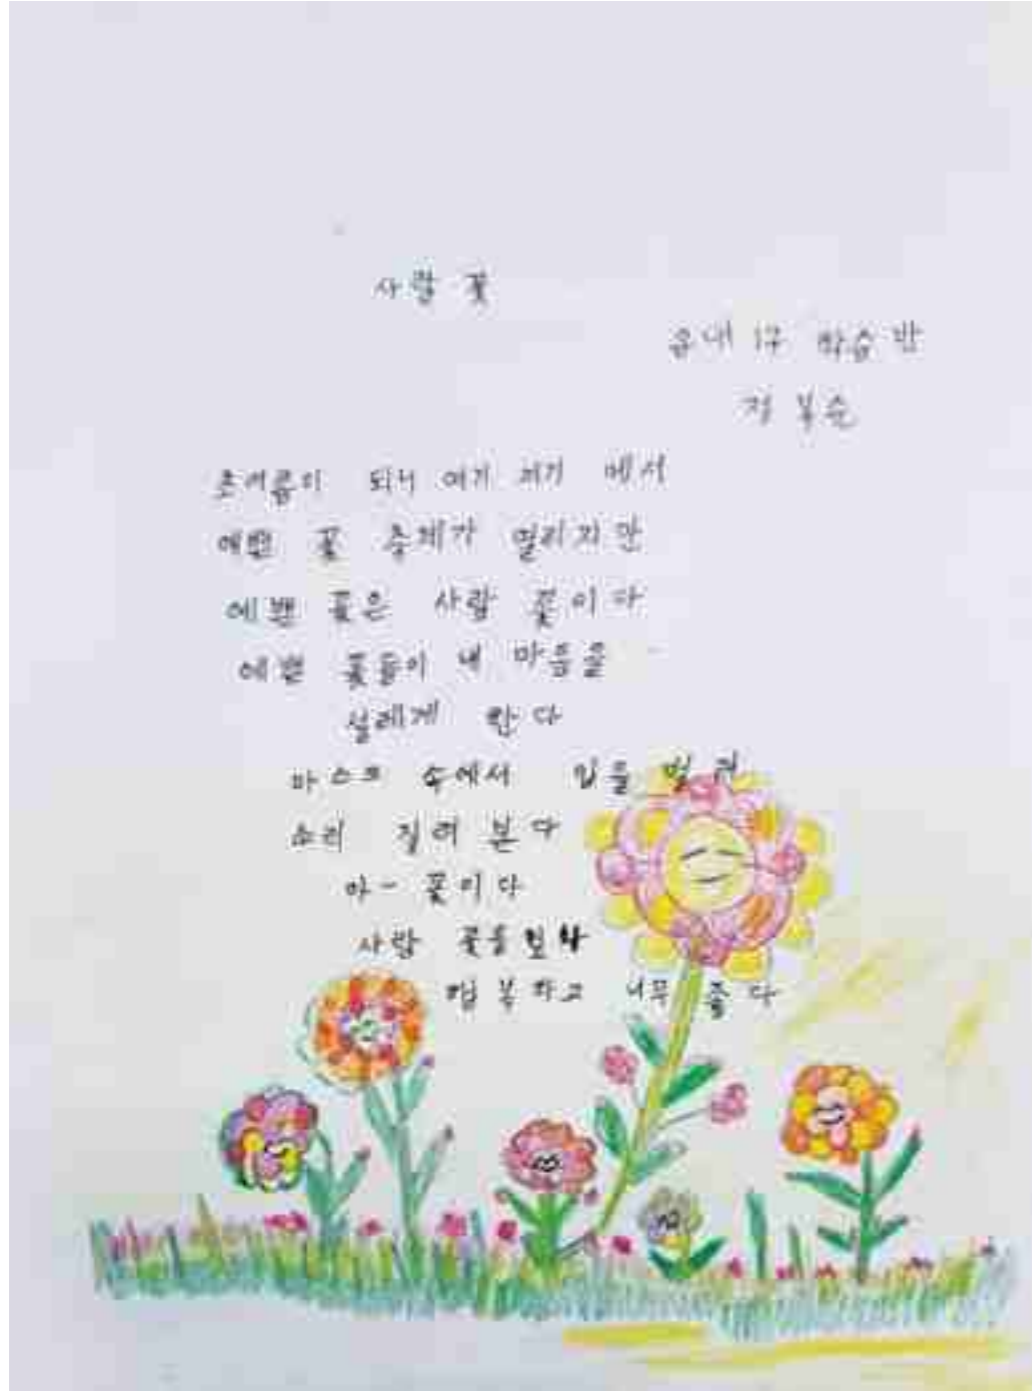 사람 꽃
용대1구 학습반
정복순
초여름이 되니 여기 저기 에서
예쁜 꽃 축제가 열리지만
예쁜 꽃은 사람 꽃이다
예쁜 꽃들이 내 마음을
설레게 한다
마스크 속에서 입을 벌려
소리 질러 본다
아- 꽃이다
사람 꽃을보니
행복하고 너무 좋다